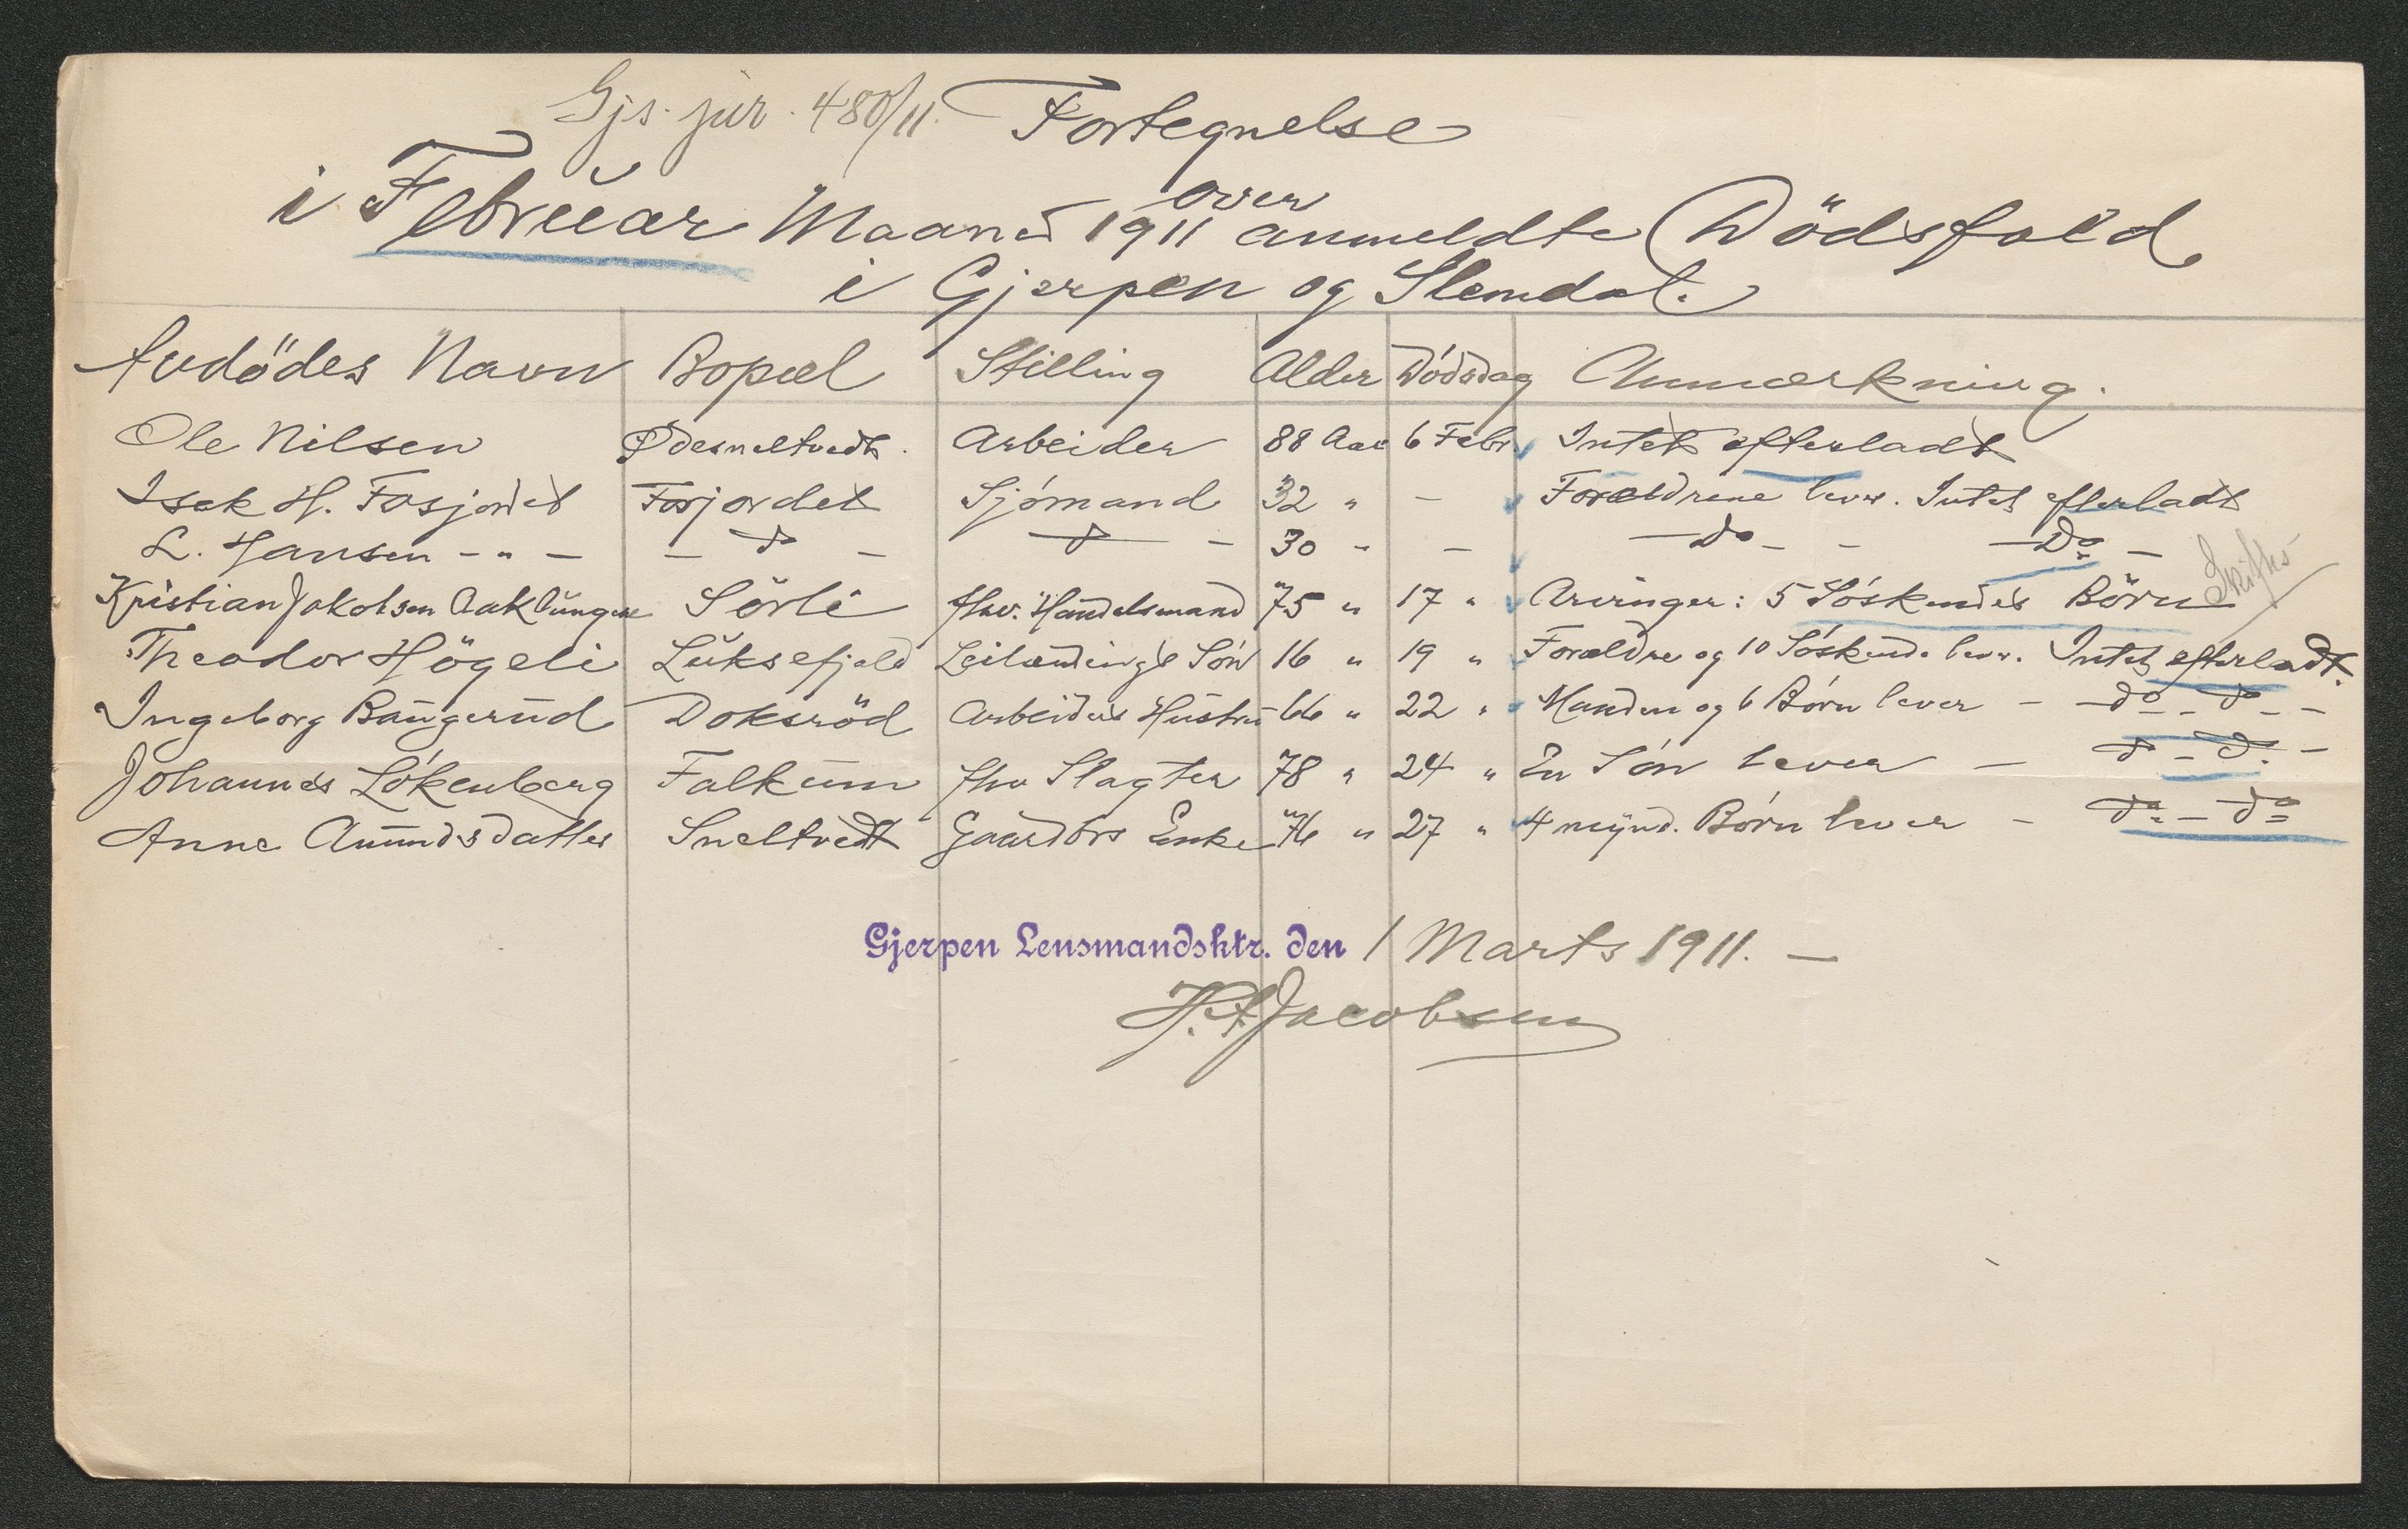 Gjs. jur. 480/11. Fortegnelse
over
i Februar Maaned 1911 anmeldte Dödsfald
i Gjerpen og Slemdal.
Avdödes Navn Bopæl Stilling Alder Dödsdag Anmærkning.
Ole Nilsen Ødesneltvedt. Arbeider 88 Aar 6 Febr. Intet efterladt
Isak H. Fosjordet Fosjordet Sjömand 32 " - Forældrene lever. Intet efterladt
L. Hansen - " - - do - do - 30 " - - do - - - Do -
Kristian Jakobsen Aaklungen Sörli fhv. Handelsmand 75 " 17 " Arvinger: 5 Söskendes Börn Skifte
Theodor Högeli Luksefjeld Leilændings Sön 16 " 19 " Forældre og 10 Söskende lever. Intet efterladt.
Ingeborg Baugerud Doksröd Arbeiders Hustru 66 " 22 " Manden og 6 Börn lever - do - do - -
Johannes Lökenberg Falkum fhv Slagter 78 " 24 " En Sön lever - do - do -
Anne Amundsdatter Sneltvedt Gaardbrs Enke 76 " 27 " 4 mynd. Börn lever - do - do
Gjerpen Lensmandsktr. den 1 Marts 1911. -
H. A. Jacobsen